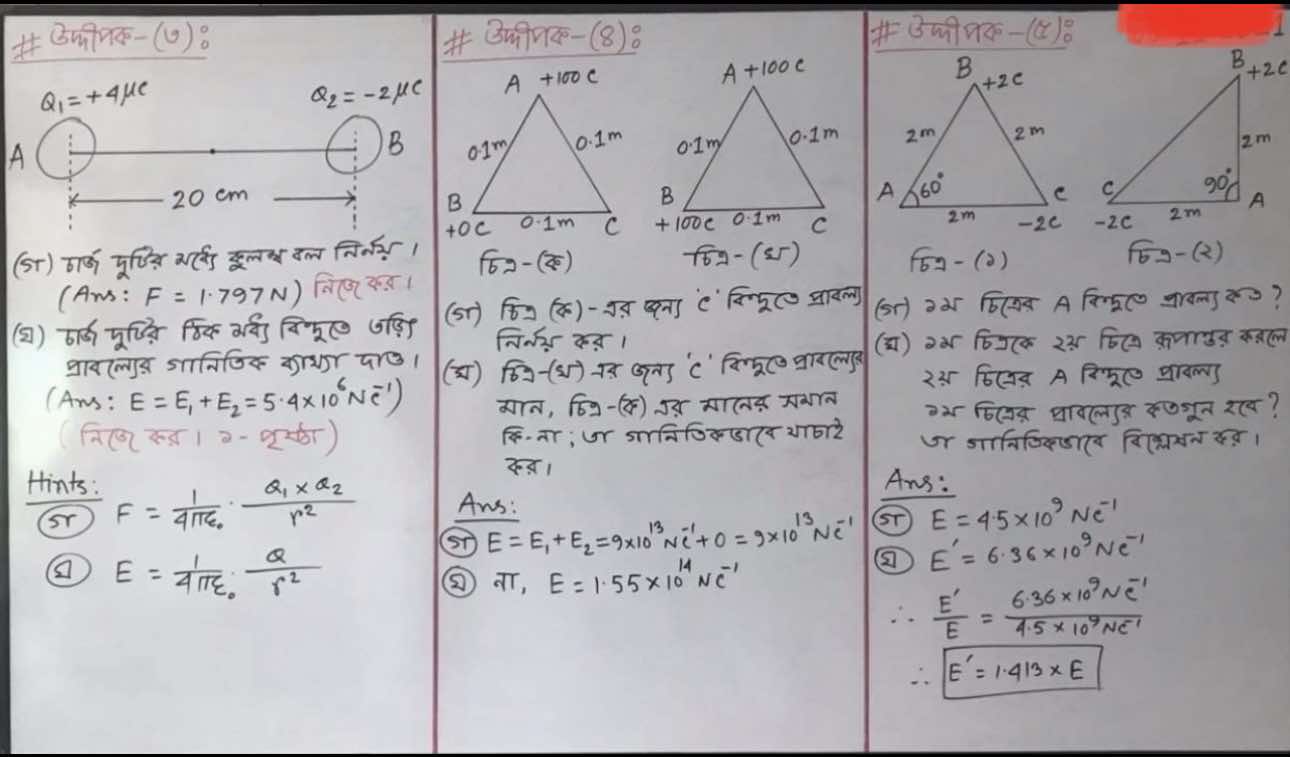 # উদ্দীপক-(৩):
Q₁=+4μC
Q₂=-2μC
A
B
20 cm
(গ) চার্জ দুটির মধ্যে কুলম্ব বল নির্নয় ।
(Ans: F = 1.797N) নিজে কর।
(ঘ) চার্জ দুটির ঠিক মধ্য বিন্দুতে তড়িৎ
প্রাবল্যের গানিতিক ব্যাখ্যা দাও।
(Ans: E = E₁+E₂=5.4×10⁶NC⁻¹)
(নিজে কর। ১- পৃষ্ঠা)
Hints:
(গ) F = 1/4πε₀ · Q₁ × Q₂/r²
(ঘ) E = 1/4πε₀ · Q/r²
# উদ্দীপক-(৪):
A +100C
0.1m
0.1m
B
+0C
0.1m
C
চিত্র-(ক)
A +100C
0.1m
0.1m
B
+100C
0.1m
C
চিত্র-(খ)
(গ) চিত্র (ক)-এর জন্য 'C' বিন্দুতে প্রাবল্য
নির্নয় কর।
(ঘ) চিত্র-(খ) এর জন্য 'C' বিন্দুতে প্রাবল্যের
মান, চিত্র-(ক) এর মানের সমান
কি-না; তা গানিতিকভাবে যাচাই
কর।
Ans:
(গ) E = E₁+E₂=9×10¹³NC⁻¹+0 = 9×10¹³NC⁻¹
(ঘ) না, E = 1.55×10¹⁴NC⁻¹
# উদ্দীপক-(৫):
1
B
+2C
2m
2m
A
60°
2m
C
-2C
চিত্র-(১)
B
+2C
2m
C
90°
A
-2C
2m
চিত্র-(২)
(গ) ১ম চিত্রের A বিন্দুতে প্রাবল্য কত?
(ঘ) ১ম চিত্রকে ২য় চিত্রে রূপান্তর করলে
২য় চিত্রের A বিন্দুতে প্রাবল্য
১ম চিত্রের প্রাবল্যের কতগুন হবে?
তা গানিতিকভাবে বিশ্লেষন কর।
Ans:
(গ) E = 4.5×10⁹ NC⁻¹
(ঘ) E′ = 6.36×10⁹NC⁻¹
∴ E′/E = 6.36×10⁹NC⁻¹/4.5×10⁹NC⁻¹
∴ E′=1.413×E